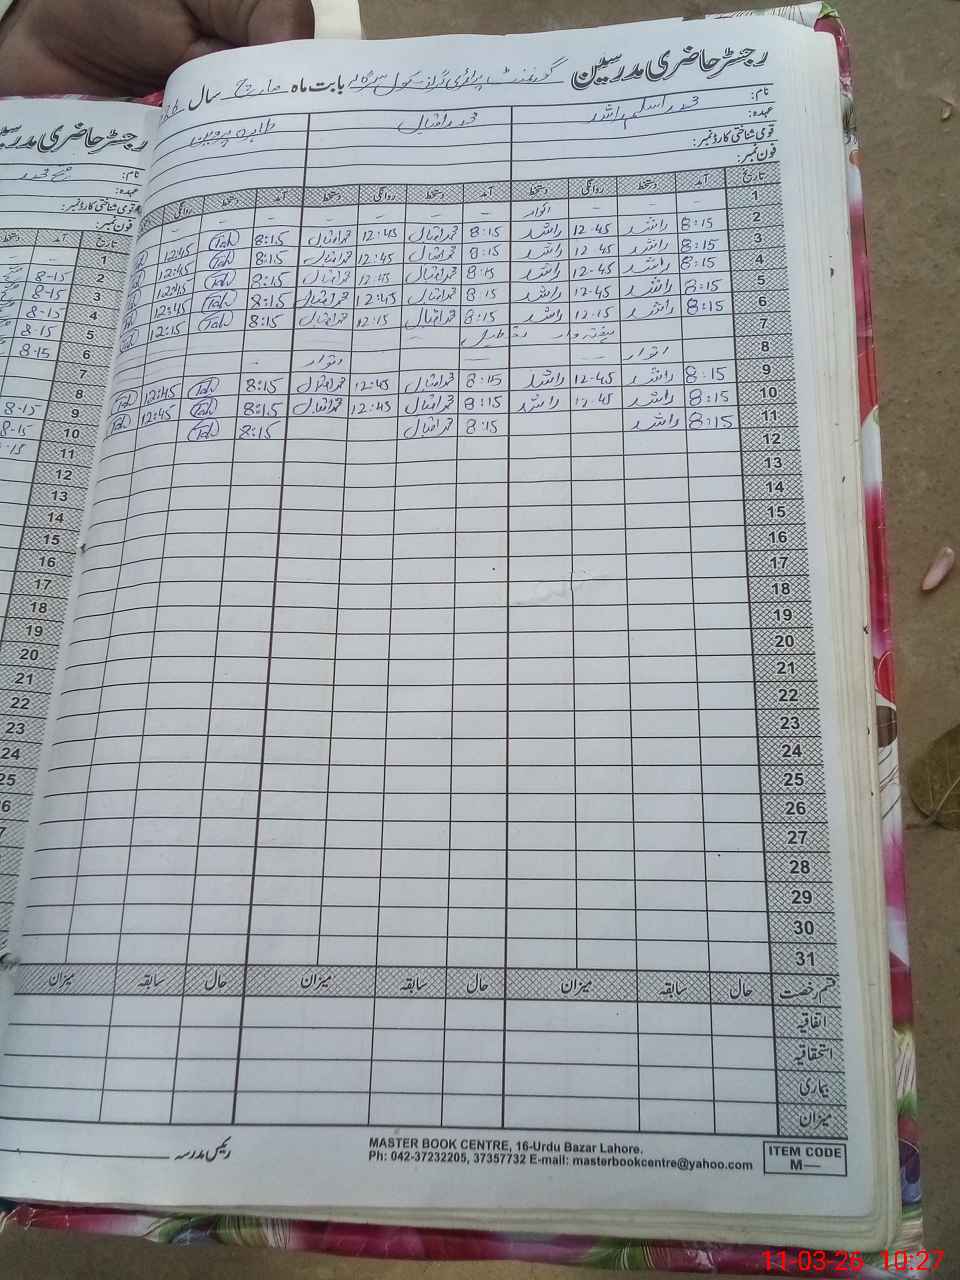 رجسٹر حاضری مدرسین گورنمنٹ پرائمری گرلز سکول بابت ماہ مارچ سال 26
نام: محمد اسلم راشد محمد اقبال طاہرہ پروین
عہدہ:
قومی شناختی کارڈ نمبر:
فون نمبر:
تاریخ آمد دستخط روانگی دستخط آمد دستخط روانگی دستخط آمد دستخط روانگی
1 – – – اتوار – – – – – – –
2 8:15 راشد 12-45 راشد 8:15 محمد اقبال 12:45 محمد اقبال 8:15 Tah 12:45
3 8:15 راشد 12-45 راشد 8:15 محمد اقبال 12:45 محمد اقبال 8:15 Tah 12:45
4 8:15 راشد 12-45 راشد 8:15 محمد اقبال 12:45 محمد اقبال 8:15 Tah 12:45
5 8:15 راشد 12-45 راشد 8:15 محمد اقبال 12:45 محمد اقبال 8:15 Tah 12:45
6 8:15 راشد 12-15 راشد 8:15 محمد اقبال 12:15 محمد اقبال 8:15 Tah 12:15
7 ہفتہ وار تعطیل
8 اتوار – – – اتوار –
9 8:15 راشد 12-45 راشد 8:15 محمد اقبال 12:45 محمد اقبال 8:15 Tah 12:45
10 8:15 راشد 12-45 راشد 8:15 محمد اقبال 12:45 محمد اقبال 8:15 Tah 12:45
11 8:15 راشد 8:15 محمد اقبال 8:15 Tah
12
13
14
15
16
17
18
19
20
21
22
23
24
25
26
27
28
29
30
31
قسم رخصت حال سابقہ میزان حال سابقہ میزان حال سابقہ میزان
اتفاقیہ
استحقاقیہ
بیماری
میزان
رئیس مدرسہ
MASTER BOOK CENTRE, 16-Urdu Bazar Lahore.
Ph: 042-37232205, 37357732 E-mail: masterbookcentre@yahoo.com
ITEM CODE
M—
رجسٹر حاضری مدرسین
نام:
عہدہ:
قومی شناختی کارڈ نمبر:
فون نمبر:
تاریخ آمد دستخط
1
2 8-15
3 8-15
4 8-15
5 8-15
6 8-15
7
8
9 8-15
10 8-15
11 8-15
12
13
14
15
16
17
18
19
20
21
22
23
24
25
11-03-26 10:27